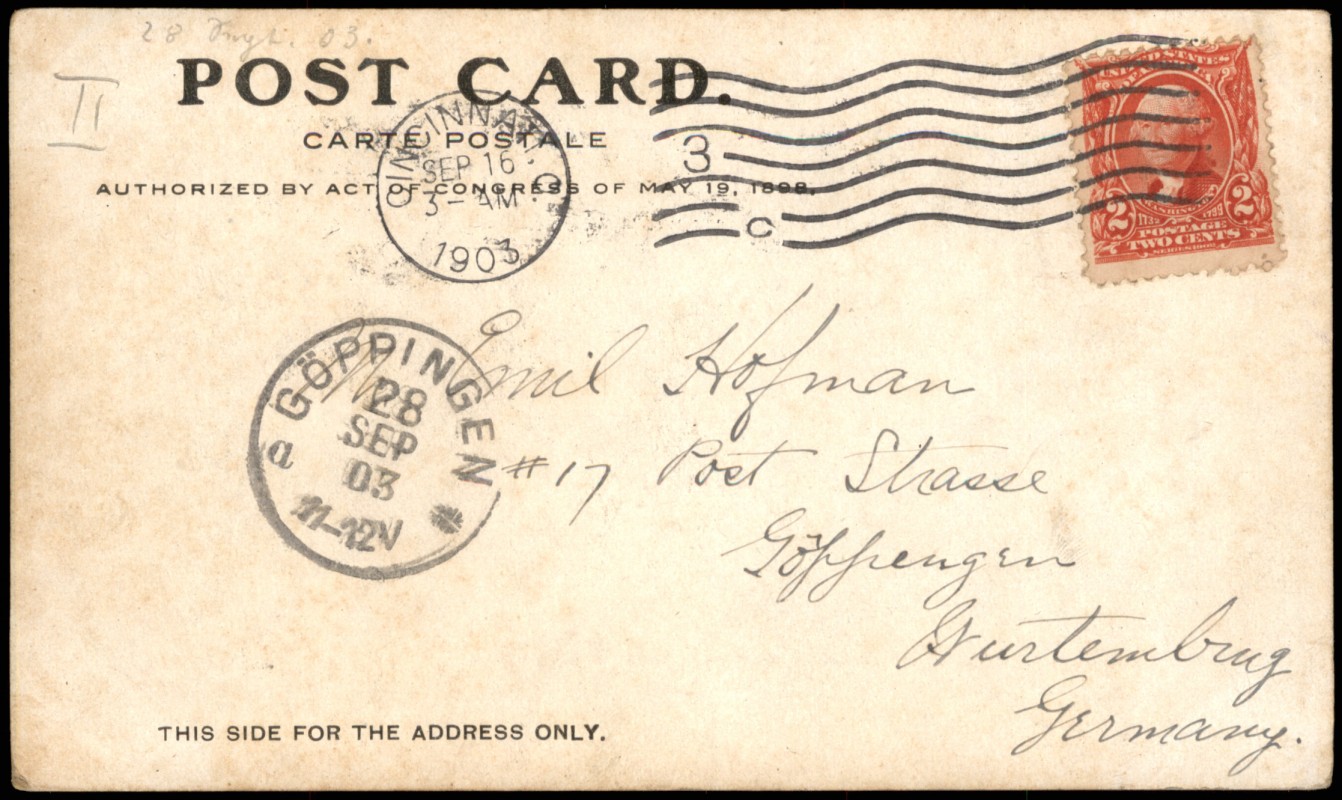 28 Sept. 03.
II
POST CARD.
CARTE POSTALE
AUTHORIZED BY ACT OF CONGRESS OF MAY 19, 1898.
CINCINNATI, O.
SEP 16
3 - AM
1903
3
C
UNITED STATES
2 2
1732 WASHINGTON 1799
POSTAGE
TWO CENTS
SERIES 1902
GÖPPINGEN
28
SEP
03
11-12V
a
Mr Emil Hofman
#17 Post Strasse
Göppengen
Wurtemburg
Germany.
THIS SIDE FOR THE ADDRESS ONLY.